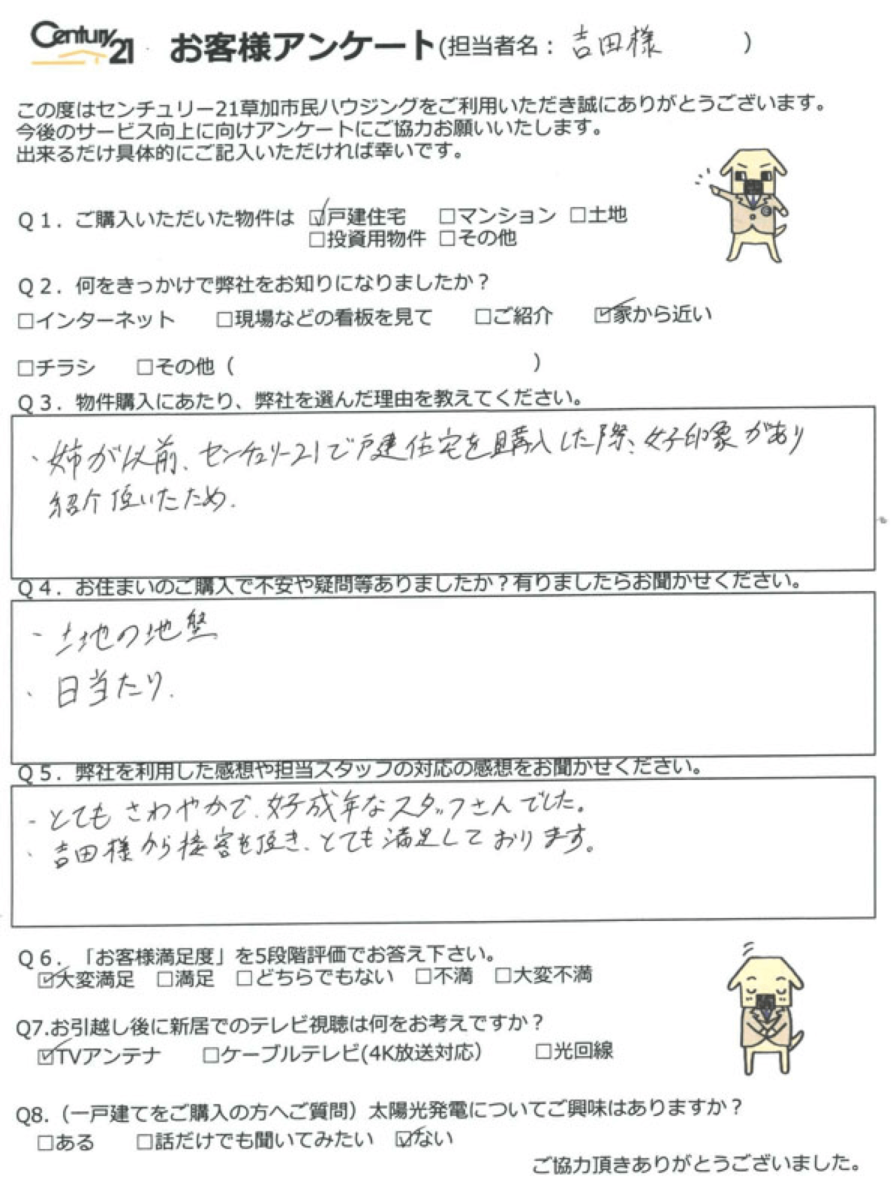 Century 21 お客様アンケート(担当者名: 吉田様 )
この度はセンチュリー21草加市民ハウジングをご利用いただき誠にありがとうございます。
今後のサービス向上に向けアンケートにご協力お願いいたします。
出来るだけ具体的にご記入いただければ幸いです。
Q1. ご購入いただいた物件は ☑戸建住宅 □マンション □土地
□投資用物件 □その他
Q2. 何をきっかけで弊社をお知りになりましたか?
□インターネット □現場などの看板を見て □ご紹介 ☑家から近い
□チラシ □その他( )
Q3. 物件購入にあたり、弊社を選んだ理由を教えてください。
・姉が以前、センチュリー21で戸建住宅を購入した際、好印象があり
紹介頂いたため.
Q4. お住まいのご購入で不安や疑問等ありましたか?有りましたらお聞かせください。
・土地の地盤
・日当たり.
Q5. 弊社を利用した感想や担当スタッフの対応の感想をお聞かせください。
・とてもさわやかで、好成年なスタッフさんでした。
・吉田様から接客を頂き、とても満足しております。
Q6. 「お客様満足度」を5段階評価でお答え下さい。
☑大変満足 □満足 □どちらでもない □不満 □大変不満
Q7.お引越し後に新居でのテレビ視聴は何をお考えですか?
☑TVアンテナ □ケーブルテレビ(4K放送対応) □光回線
Q8.(一戸建てをご購入の方へご質問)太陽光発電についてご興味はありますか?
□ある □話だけでも聞いてみたい ☑ない
ご協力頂きありがとうございました。